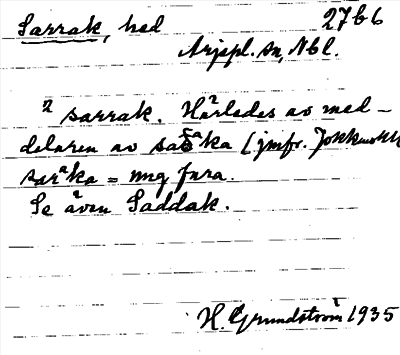 Sarrak, hed 27 b 6
Arjepl. sn, Nbl.
² sarrak. Härledes av med-
delaren av saŕᵃka (jmfr. Jokkmokk
sarᵃka = ung fura.
Se även Saddak.
H. Grundström 1935